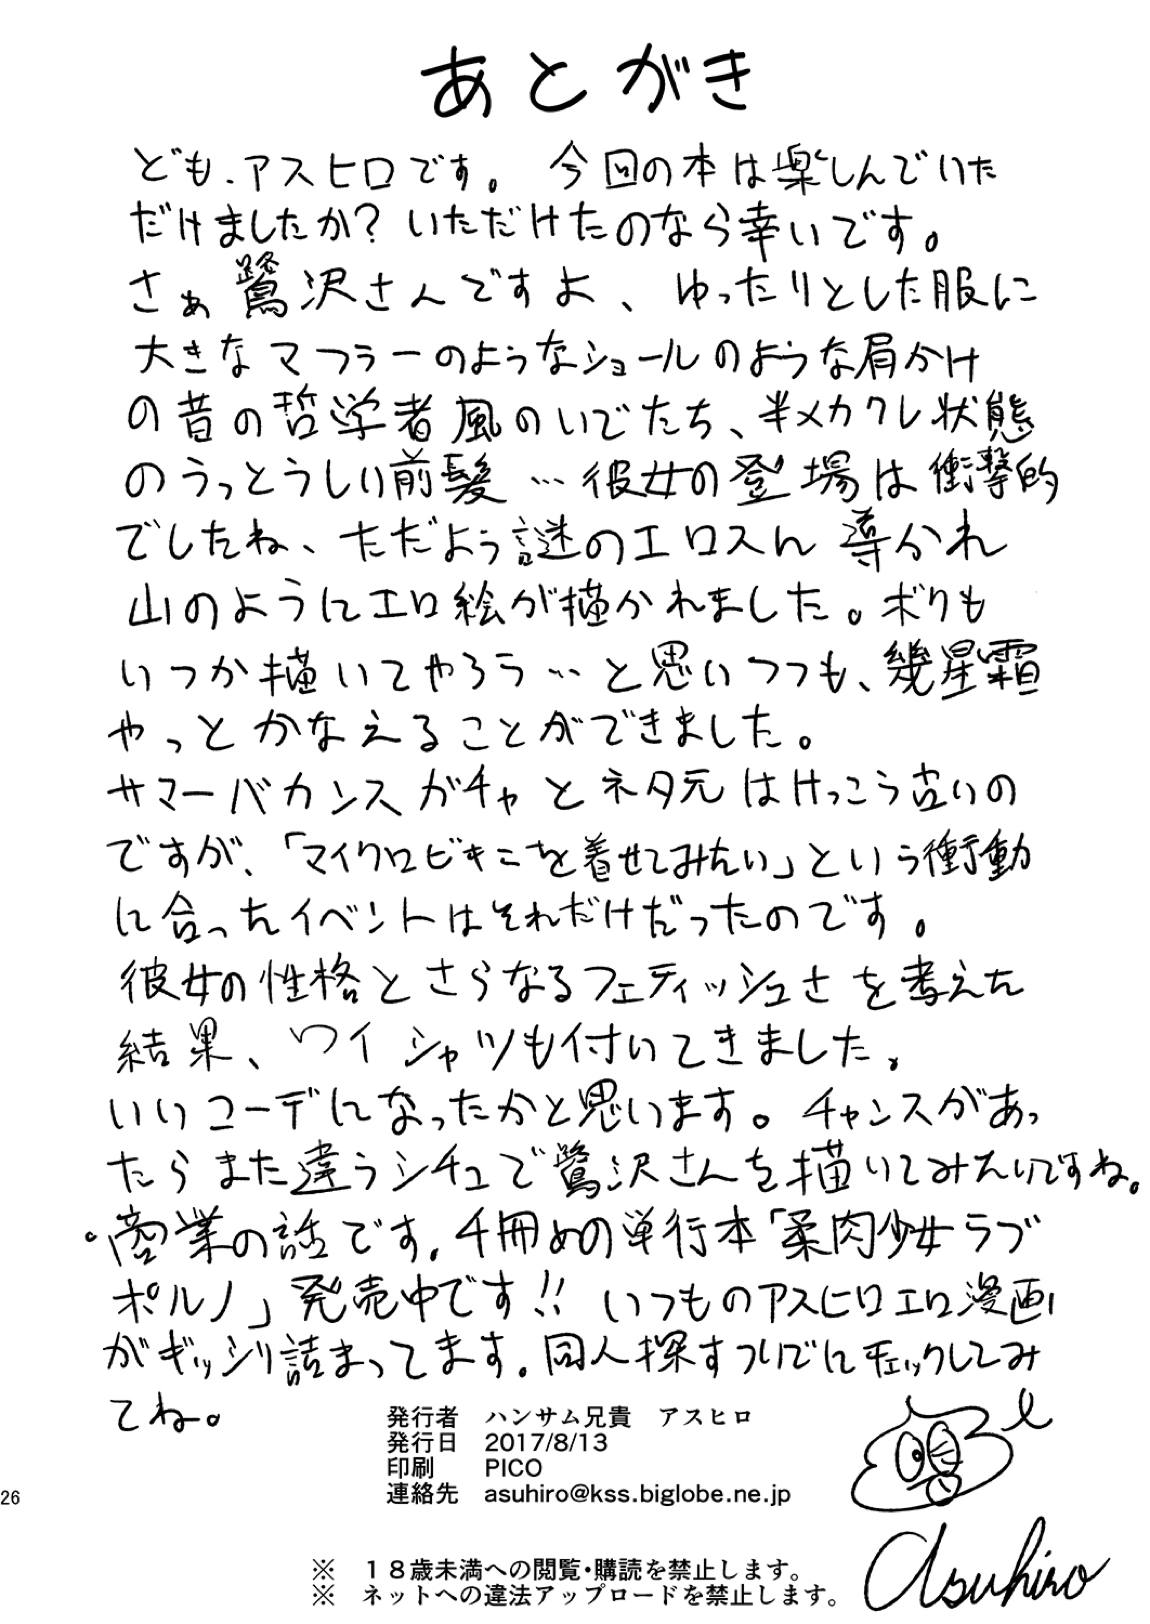 あとがき
ども、アスヒロです。 今回の本は楽しんでいた
だけましたか? いただけたのなら幸いです。
さぁ鷺沢さんですよ、ゆったりとした服に
大きなマフラーのようなショールのような肩かけ
の昔の哲学者風のいでたち、半メカクレ状態
のうっとうしい前髪…彼女の登場は衝撃的
でしたね、ただよう謎のエロスん導かれ
山のようにエロ絵が描かれました。ボクも
いつか描いてやろう…と思いつつも、幾星霜
やっとかなえることができました。
サマーバカンスガチャとネタ元はけっこう古いの
ですが、「マイクロビキニを着せてみたい」という衝動
に合ったイベントはそれだけだったのです。
彼女の性格とさらなるフェティッシュさを考えた
結果、ワイシャツも付いてきました。
いいコーデになったかと思います。チャンスがあっ
たらまた違うシチュで鷺沢さんを描いてみたいですね。
・商業の話です。4冊めの単行本「柔肉少女ラブ
ポルノ」発売中です!! いつものアスヒロエロ漫画
がギッシリ詰まってます。同人探すついでにチェックしてみ
てね。
発行者 ハンサム兄貴 アスヒロ
発行日 2017/8/13
印刷 PICO
連絡先 asuhiro@kss.biglobe.ne.jp
26
Asuhiro
※ 18歳未満への閲覧・購読を禁止します。
※ ネットへの違法アップロードを禁止します。